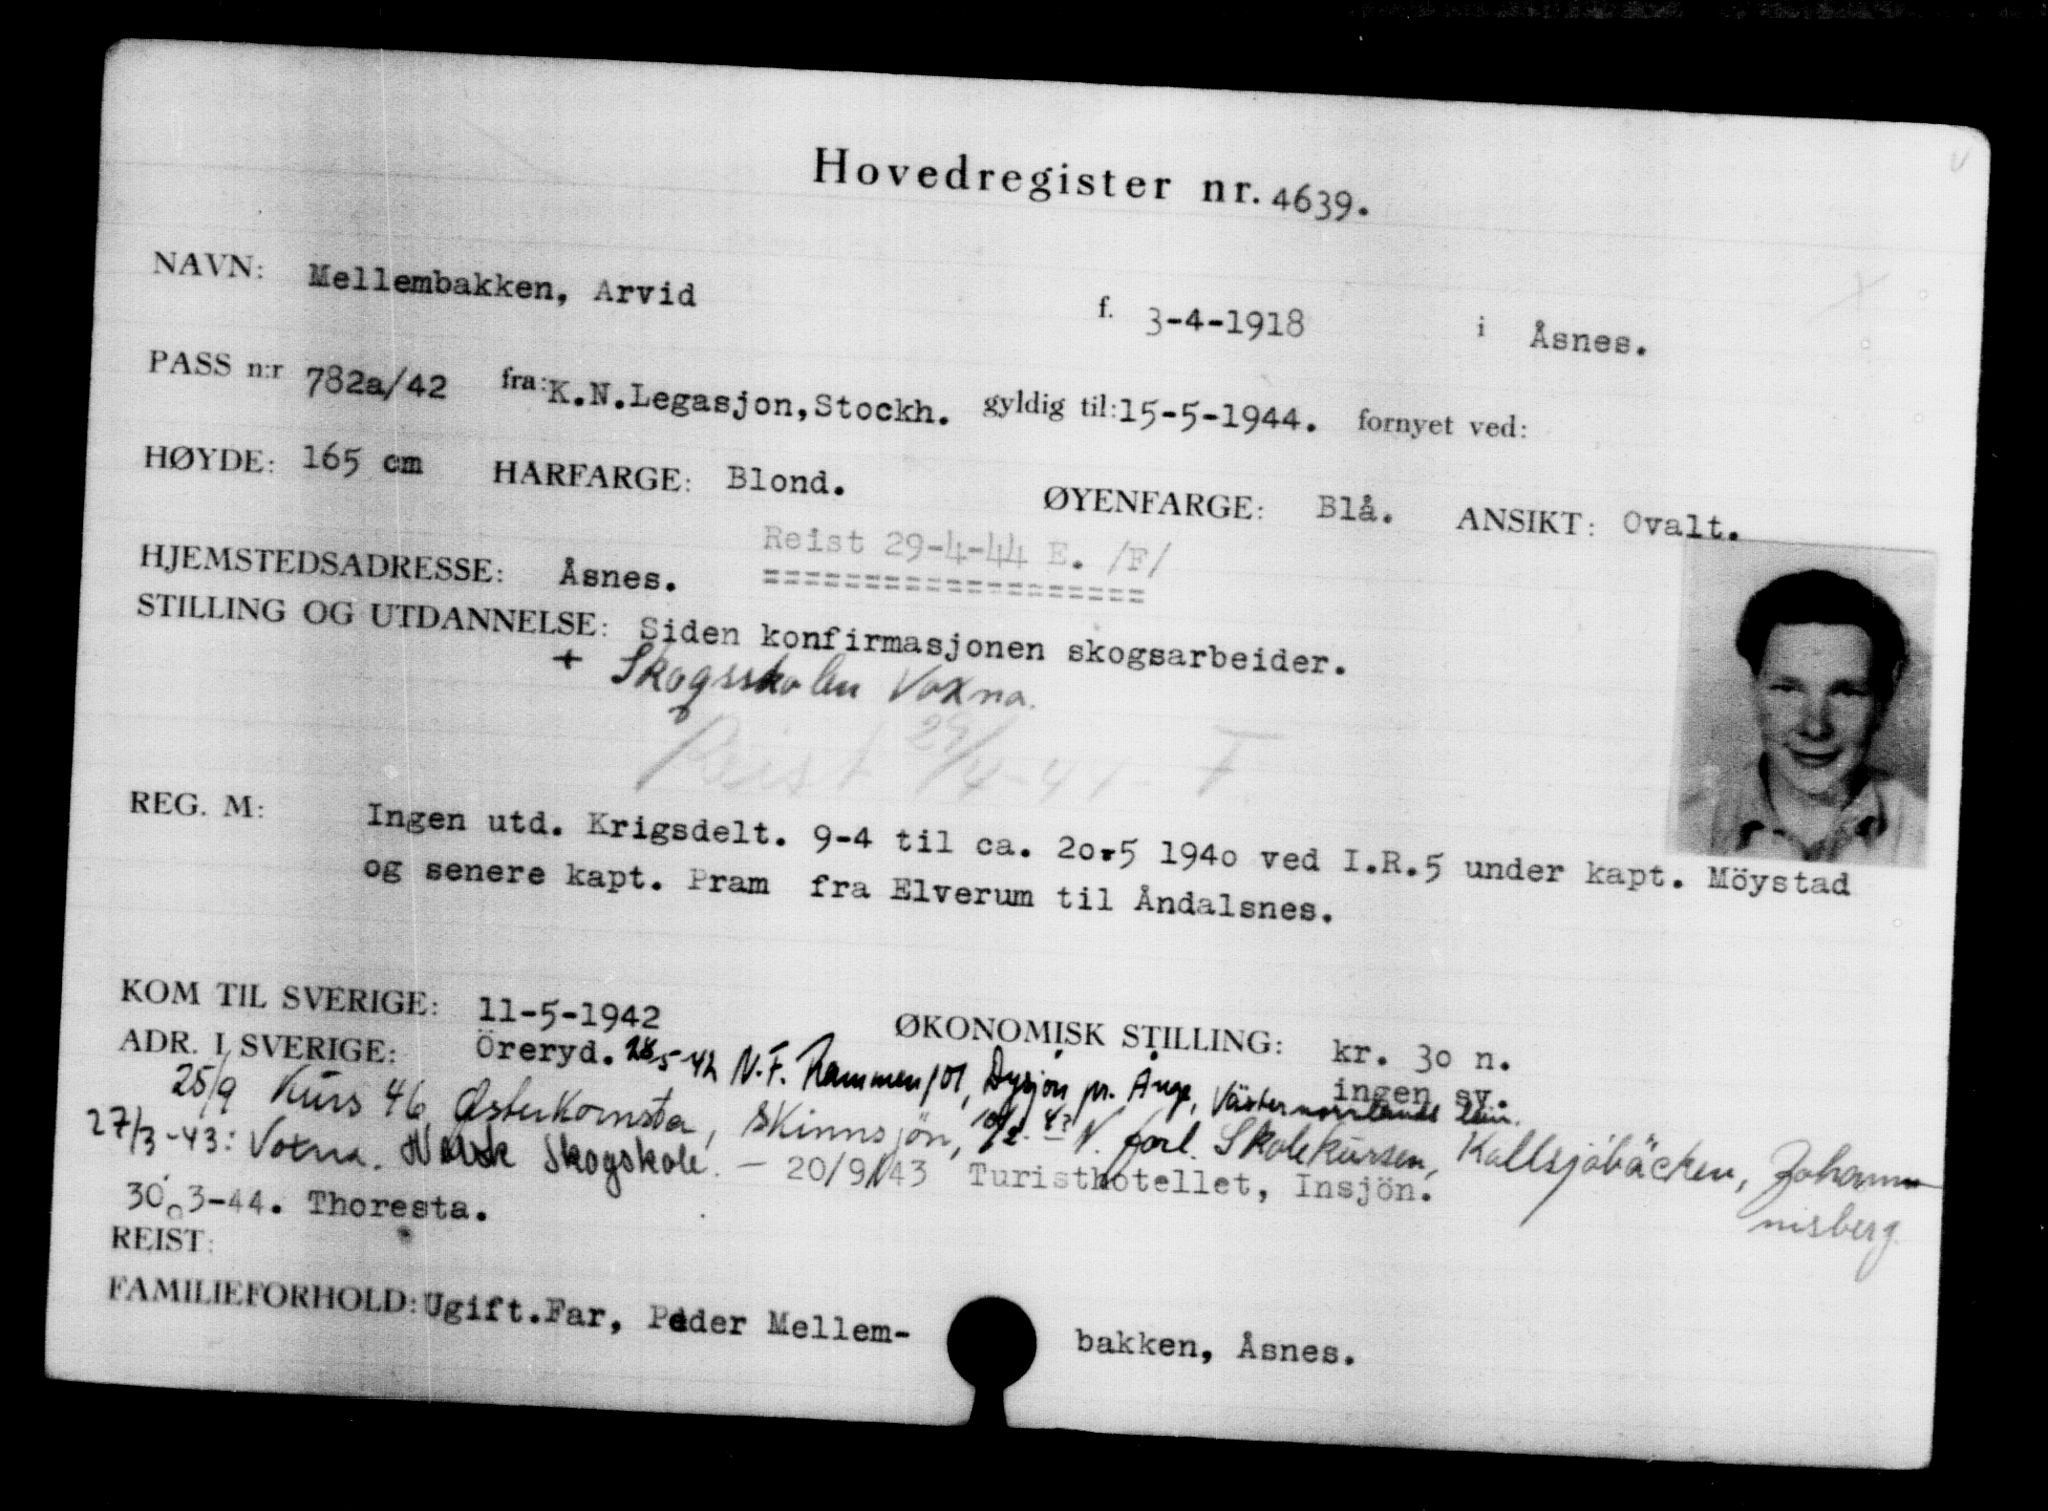 Hovedregister nr. 4639.
NAVN: Mellembakken, Arvid f. 3-4-1918 i Åsnes.
PASS n:r 782a/42 fra: K.N.Legasjon, Stockh. gyldig til: 15-5-1944. fornyet ved:
HØYDE: 165 cm HARFARGE: Blond. ØYENFARGE: Blå. ANSIKT: Ovalt.
Reist 29-4-44 E. /F/
HJEMSTEDSADRESSE: Åsnes. ==================
STILLING OG UTDANNELSE: Siden konfirmasjonen skogsarbeider.
+ Skogsskolen Voxna.
Reist 29/4-44 - F.
REG. M: Ingen utd. Krigsdelt. 9-4 til ca. 20.5 1940 ved I.R.5 under kapt. Möystad
og senere kapt. Pram fra Elverum til Åndalsnes.
KOM TIL SVERIGE: 11-5-1942 ØKONOMISK STILLING: kr. 30 n.
ingen sv.
ADR. I SVERIGE: Öreryd. 28-5-42 N.F. Dysjön pr. Ånge, Västernorrlands län.
25/9 Kurs 46 Østerkornsta, Skinnsjön, N. forl. Skolekursen, Kallsjöbäcken, Johannisberg
27/3-43: Voxna. Norsk Skogskole. — 20/9/43 Turisthotellet, Insjön.
30.3-44. Thoresta.
REIST:
FAMILIEFORHOLD: Ugift. Far, Peder Mellem- bakken, Åsnes.